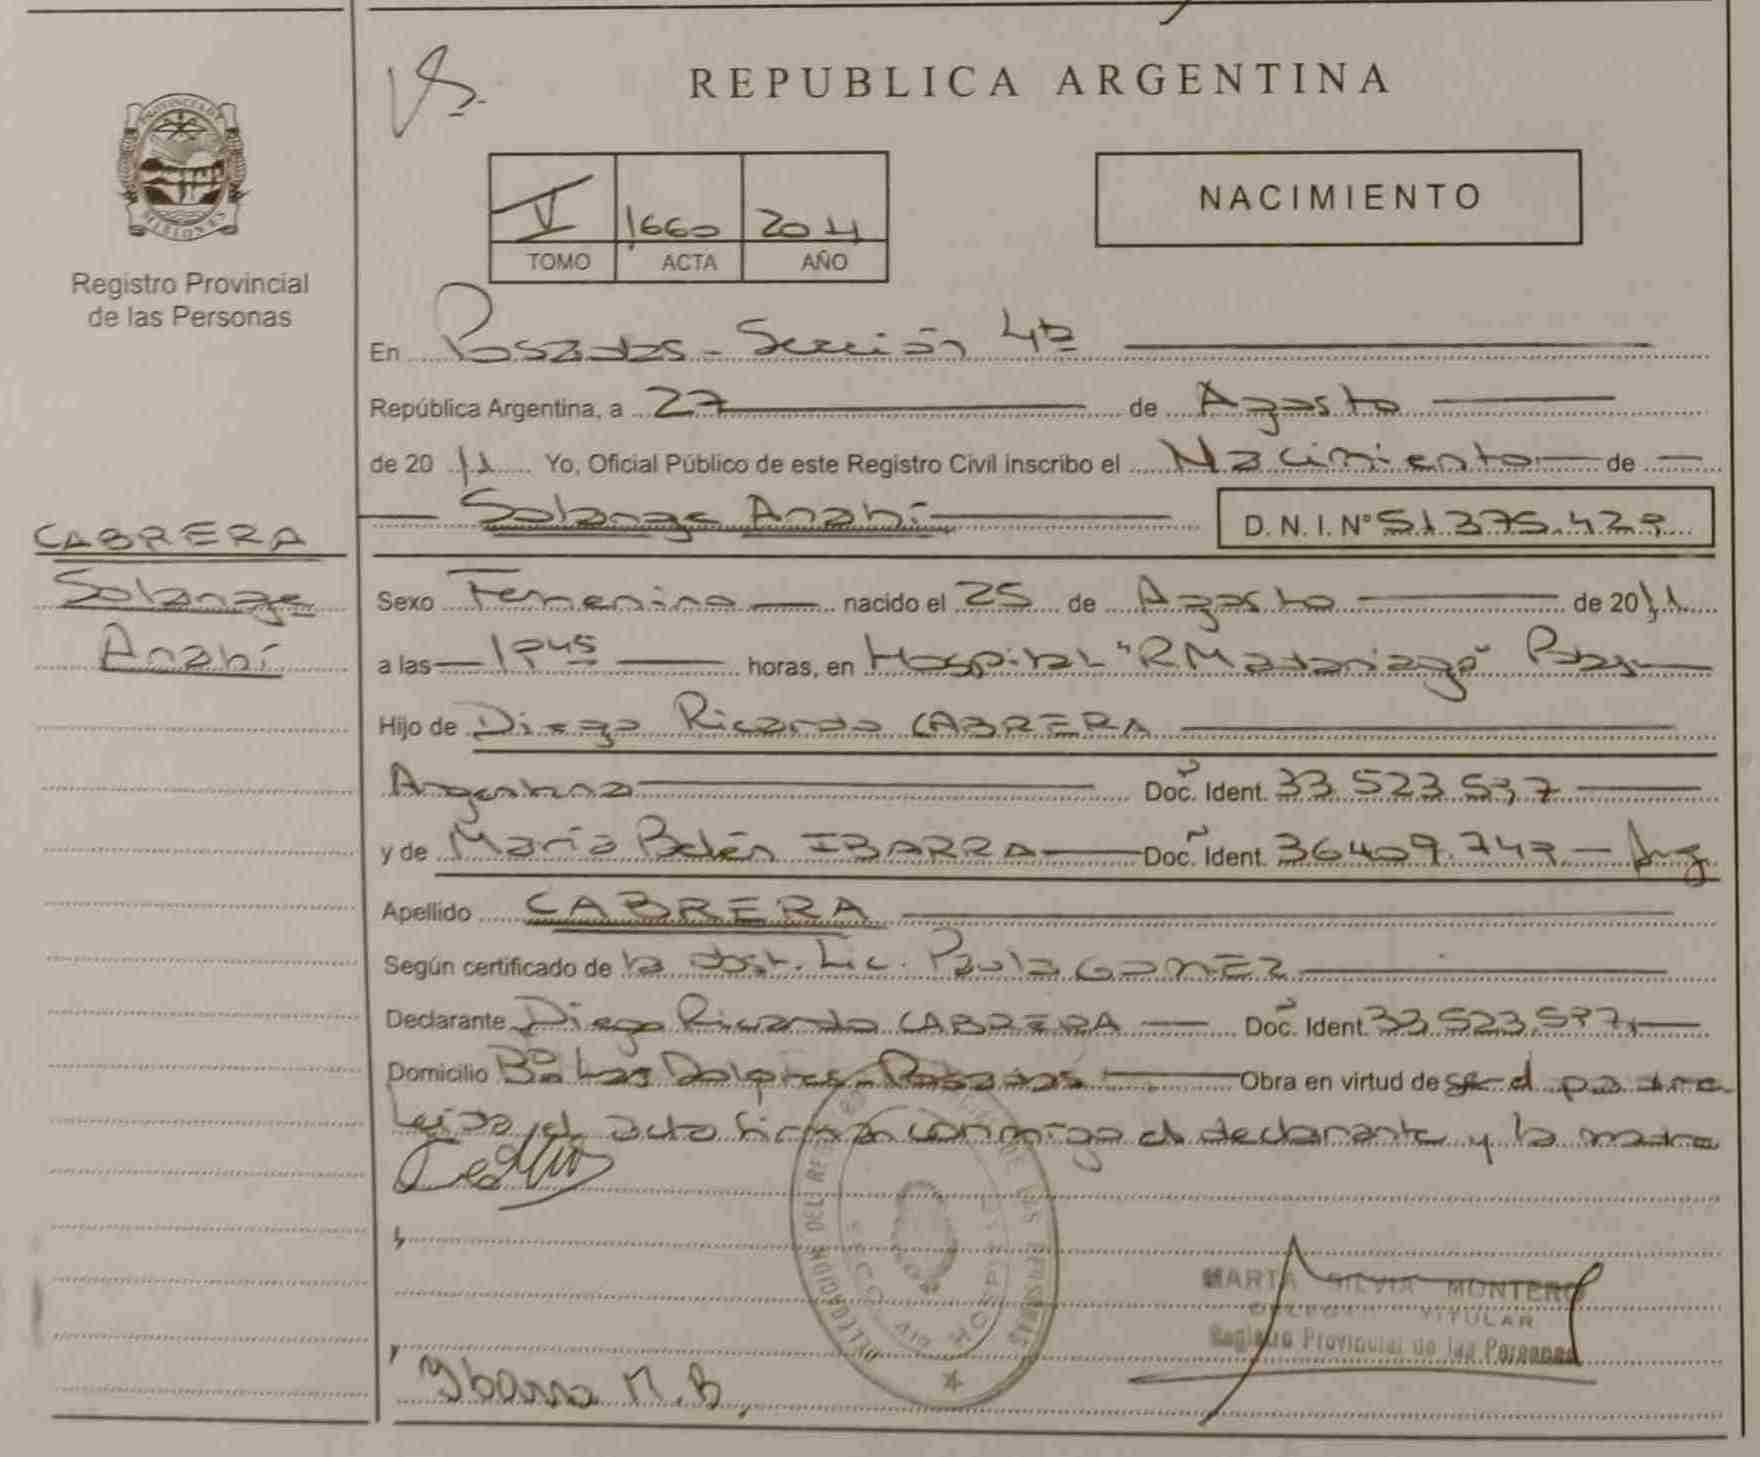 REPUBLICA ARGENTINA
PROVINCIA DE MISIONES
Registro Provincial
de las Personas
V 1660 2011
TOMO ACTA AÑO
NACIMIENTO
En Posadas - Sección 4ta
República Argentina, a 27 de Agosto
de 20 11 Yo, Oficial Público de este Registro Civil inscribo el Nacimiento de
Solange Anahí D. N. I. Nº 51.375.427
CABRERA
Solange
Anahí
Sexo Femenino nacido el 25 de Agosto de 2011
a las horas, en Hospital "R Madariaga" Pdas
Hijo de Diego Ricardo CABRERA
Argentina Doc. Ident. 33.523.537
y de María Belén IBARRA Doc. Ident. 36.409.747 - Arg
Apellido CABRERA
Según certificado de la obst. Lic. Paula GOMEZ
Declarante Diego Ricardo CABRERA Doc. Ident. 33.523.537
Domicilio Bº Las Posadas Obra en virtud de ser el padre
Leída el acta firman conmigo el declarante y la madre
MARTA SILVIA MONTERO
DELEGADA TITULAR
Registro Provincial de las Personas
Ybarra M.B.